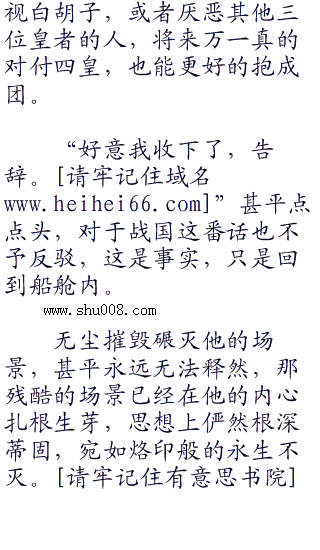 视白胡子，或者厌恶其他三
位皇者的人，将来万一真的
对付四皇，也能更好的抱成
团。
“好意我收下了，告
辞。[请牢记住域名
www.heihei66.com]”甚平点
点头，对于战国这番话也不
予反驳，这是事实，只是回
到船舱内。
www.shu008.com
无尘摧毁碾灭他的场
景，甚平永远无法释然，那
残酷的场景已经在他的内心
扎根生芽，思想上俨然根深
蒂固，宛如烙印般的永生不
灭。[请牢记住有意思书院]